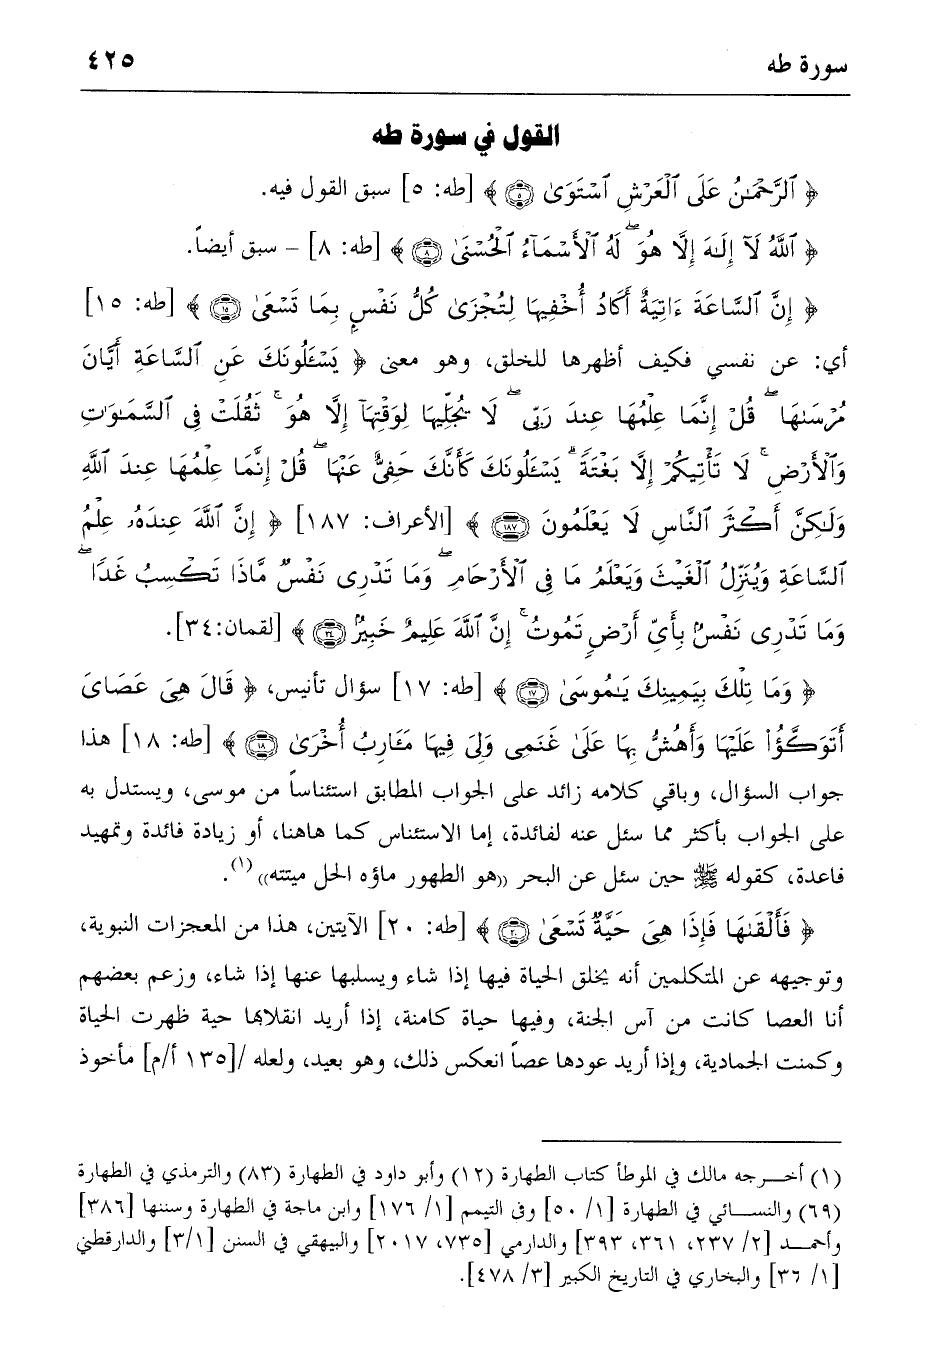 سورة طه
٤٢٥
القول في سورة طه
﴿ ٱلرَّحْمَٰنُ عَلَى ٱلْعَرْشِ ٱسْتَوَىٰ ٥ ﴾ [طه: ٥] سبق القول فيه.
﴿ ٱللَّهُ لَآ إِلَٰهَ إِلَّا هُوَ ۖ لَهُ ٱلْأَسْمَآءُ ٱلْحُسْنَىٰ ٨ ﴾ [طه: ٨] – سبق أيضاً.
﴿ إِنَّ ٱلسَّاعَةَ ءَاتِيَةٌ أَكَادُ أُخْفِيهَا لِتُجْزَىٰ كُلُّ نَفْسٍۭ بِمَا تَسْعَىٰ ١٥ ﴾ [طه: ١٥]
أي: عن نفسي فكيف أظهرها للخلق، وهو معنى ﴿ يَسْـَٔلُونَكَ عَنِ ٱلسَّاعَةِ أَيَّانَ
مُرْسَىٰهَا ۖ قُلْ إِنَّمَا عِلْمُهَا عِندَ رَبِّى ۖ لَا يُجَلِّيهَا لِوَقْتِهَآ إِلَّا هُوَ ۚ ثَقُلَتْ فِى ٱلسَّمَٰوَٰتِ
وَٱلْأَرْضِ ۚ لَا تَأْتِيكُمْ إِلَّا بَغْتَةً ۗ يَسْـَٔلُونَكَ كَأَنَّكَ حَفِىٌّ عَنْهَا ۖ قُلْ إِنَّمَا عِلْمُهَا عِندَ ٱللَّهِ
وَلَٰكِنَّ أَكْثَرَ ٱلنَّاسِ لَا يَعْلَمُونَ ١٨٧ ﴾ [الأعراف: ١٨٧] ﴿ إِنَّ ٱللَّهَ عِندَهُۥ عِلْمُ
ٱلسَّاعَةِ وَيُنَزِّلُ ٱلْغَيْثَ وَيَعْلَمُ مَا فِى ٱلْأَرْحَامِ ۖ وَمَا تَدْرِى نَفْسٌ مَّاذَا تَكْسِبُ غَدًا ۖ
وَمَا تَدْرِى نَفْسٌۢ بِأَىِّ أَرْضٍ تَمُوتُ ۚ إِنَّ ٱللَّهَ عَلِيمٌ خَبِيرٌۢ ٣٤ ﴾ [لقمان:٣٤].
﴿ وَمَا تِلْكَ بِيَمِينِكَ يَٰمُوسَىٰ ١٧ ﴾ [طه: ١٧] سؤال تأنيس، ﴿ قَالَ هِىَ عَصَاىَ
أَتَوَكَّؤُا۟ عَلَيْهَا وَأَهُشُّ بِهَا عَلَىٰ غَنَمِى وَلِىَ فِيهَا مَـَٔارِبُ أُخْرَىٰ ١٨ ﴾ [طه: ١٨] هذا
جواب السؤال، وباقي كلامه زائد على الجواب المطابق استئناساً من موسى، ويستدل به
على الجواب بأكثر مما سئل عنه لفائدة، إما الاستئناس كما هاهنا، أو زيادة فائدة وتمهيد
قاعدة، كقوله ﷺ حين سئل عن البحر ((هو الطهور ماؤه الحل ميتته))(١).
﴿ فَأَلْقَىٰهَا فَإِذَا هِىَ حَيَّةٌ تَسْعَىٰ ٢٠ ﴾ [طه: ٢٠] الآيتين، هذا من المعجزات النبوية،
وتوجيهه عن المتكلمين أنه يخلق الحياة فيها إذا شاء ويسلبها عنها إذا شاء، وزعم بعضهم
أنا العصا كانت من آس الجنة، وفيها حياة كامنة، إذا أريد انقلابها حية ظهرت الحياة
وكمنت الجمادية، وإذا أريد عودها عصاً انعكس ذلك، وهو بعيد، ولعله /[١٣٥ أ/م] مأخوذ
(١) أخــرجه مالك في الموطأ كتاب الطهارة (١٢) وأبو داود في الطهارة (٨٣) والترمذي في الطهارة
(٦٩) والنســائي في الطهارة [١/ ٥٠] وفى التيمم [١/ ١٧٦] وابن ماجة في الطهارة وسننها [٣٨٦]
وأحمــد [٢/ ٢٣٧، ٣٦١، ٣٩٣] والدارمي [٧٣٥، ٢٠١٧] والبيهقي في السنن [٣/١] والدارقطني
[١/ ٣٦] والبخاري في التاريخ الكبير [٣/ ٤٧٨].